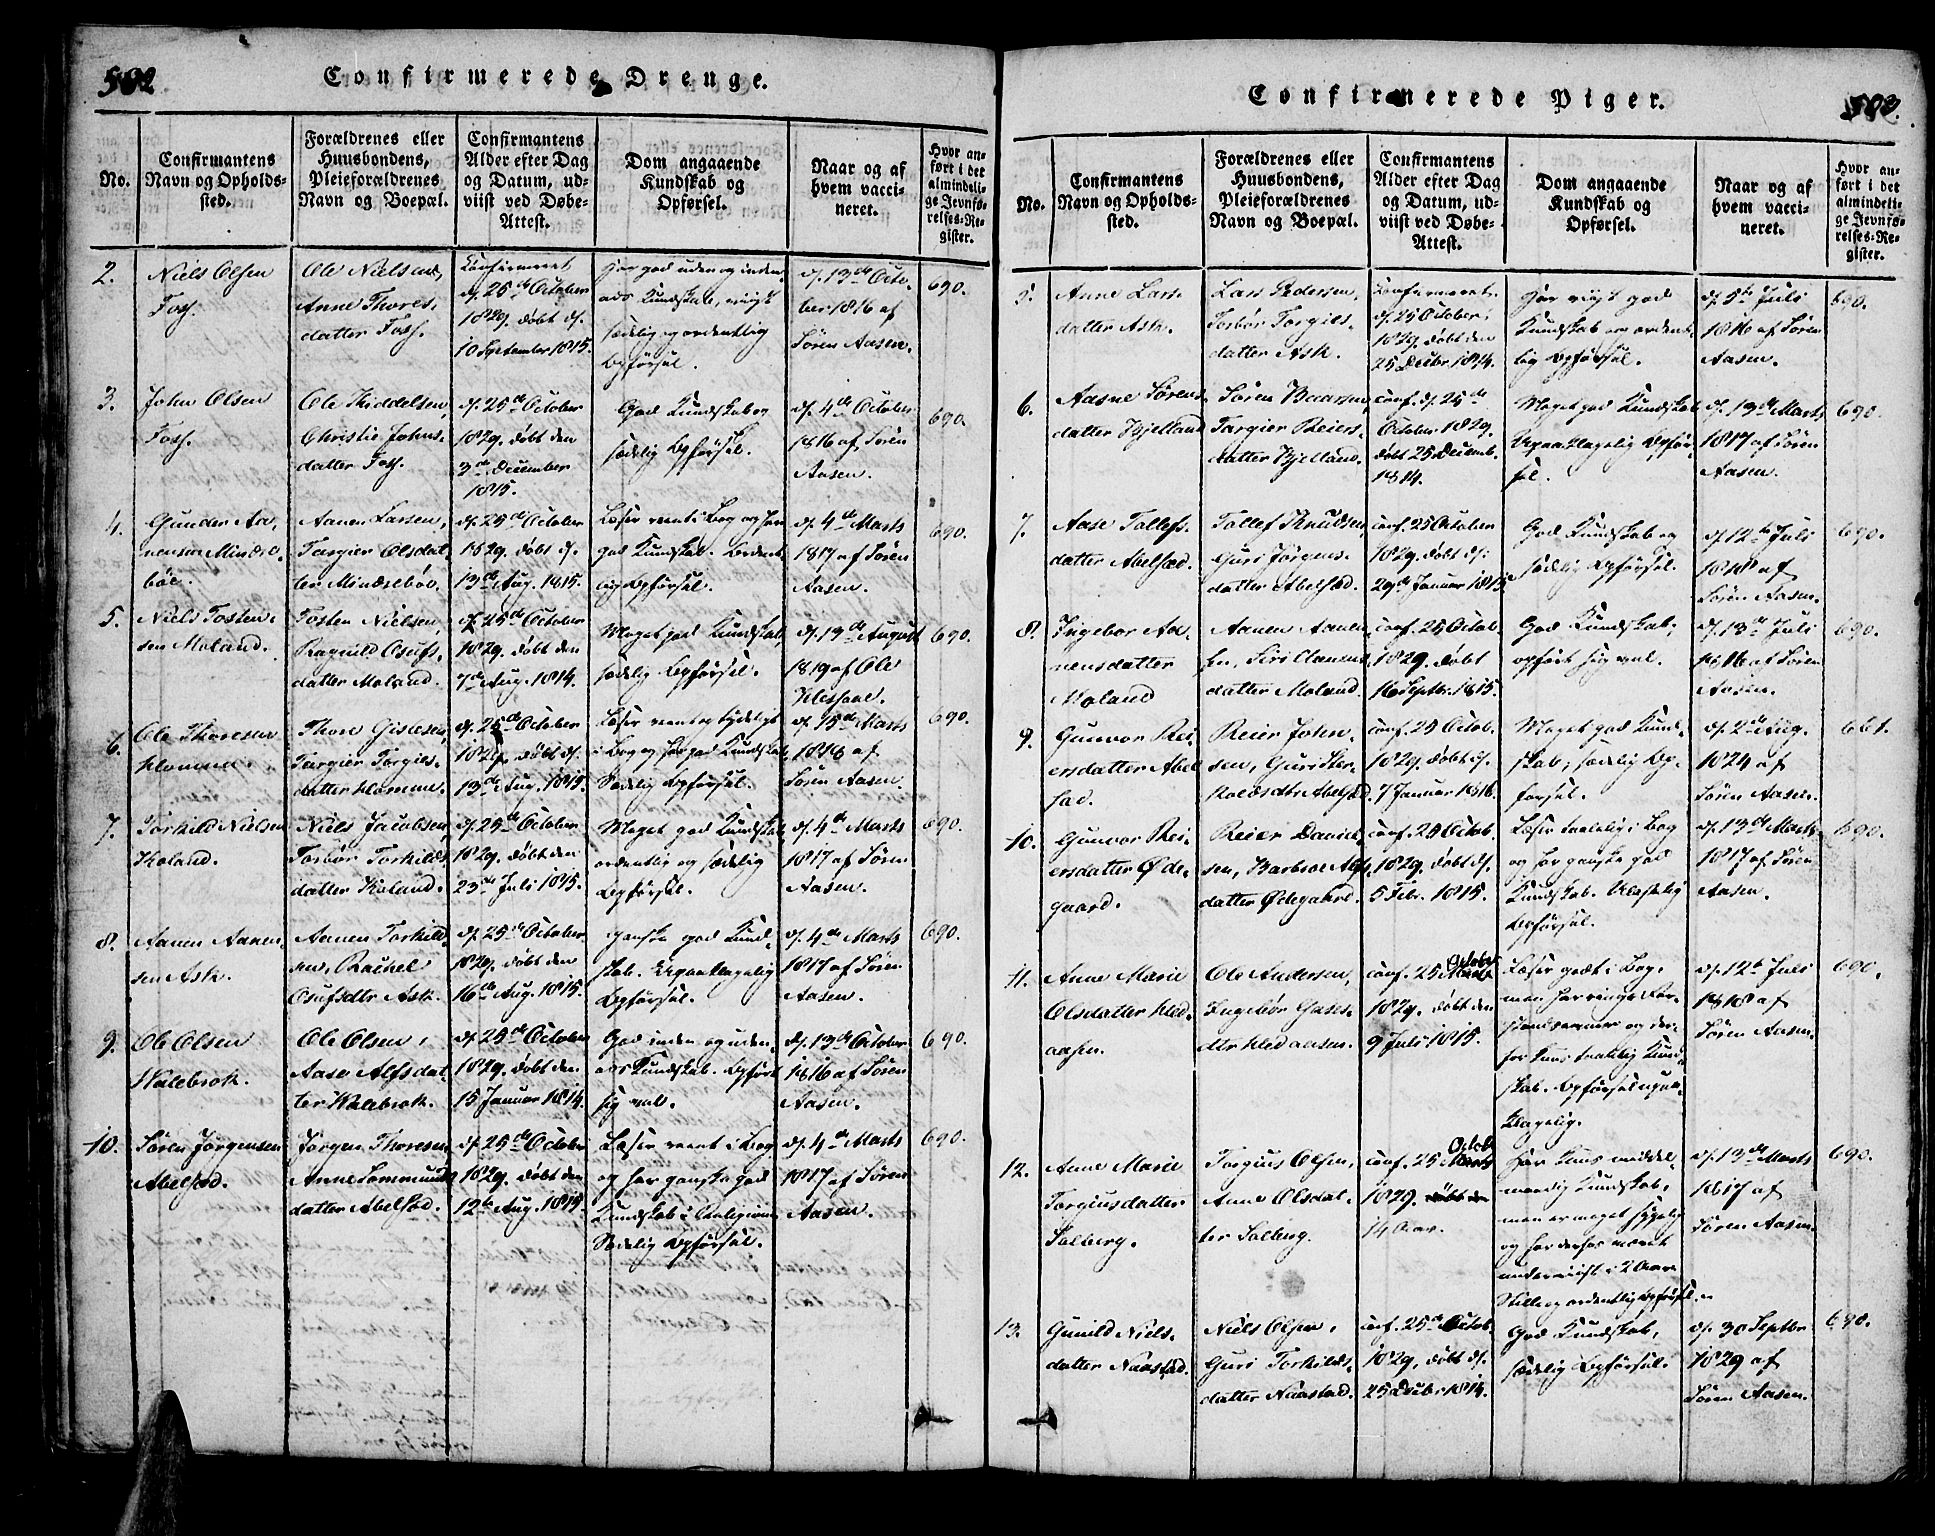 502
Confirmerede Drenge.
No.
Confirmantens
Navn og Opholds-
sted.
Forældrenes eller
Huusbondens,
Pleieforældrenes
Navn og Boepæl.
Confirmantens
Alder efter Dag
og Datum, ud-
viist ved Døbe-
Attest.
Dom angaaende
Kundskab og
Opførsel.
Naar og af
hvem vacci-
neret.
Hvor an-
ført i det
almindeli-
ge Jevnfø-
relses-Re-
gister.
2.
Niels Olsen
Foss.
Ole Nielsen,
Anne Thores-
datter Foss.
Confirmeret
d. 25de October
1829. døbt d.
10 September 1815.
Har god uden og inden-
ads Kundskab, meget
sædelig og ordentlig
Opførsel.
d. 13de Octo-
ber 1816 af
Søren Aasen.
690.
3.
John Olsen
Foss.
Ole Kiddelsen
Christie Johns-
datter Foss.
d. 25de October
1829. døbt den
3de December
1815.
God Kundskab og
sædelig Opførsel.
d. 4de October
1816 af Søren
Aasen.
690.
4.
Gunder Aa-
nensen Mindre-
böe.
Aanen Larsen,
Targier Olsdat-
ter Mindreböe.
d. 25de October
1829. døbt d.
13de Aug. 1815.
Læser reent i Bog og har
god Kundskab. Ordent-
lig Opførsel.
d. 4de Marts
1817 af Søren
Aasen.
690.
5.
Niels Tosten-
sen Moland.
Tosten Nielsen,
Ragnild Osufs-
datter Moland.
d. 25de October
1829. døbt den
7de Aug. 1814.
Meget god Kundskab,
sædelig Opførsel.
d. 19de August
1819 af Ole
Klessaae.
690.
6.
Ole Thoresen
Homme.
Thore Gislesen,
Targier Torgies-
datter Homme.
d. 25de October
1829. døbt d.
13de Aug. 1815.
Læser reent og tydeligt
i Bog og har god Kundskab.
Sædelig Opførsel.
d. 15de Marts
1818 af
Søren Aasen.
690.
7.
Torkild Nielsen
Holand.
Niels Jacobsen,
Torbör Torkilds-
datter Holand.
d. 25de October
1829. døbt den
23de Juli 1815.
Meget god Kundskab,
ordentlig og sædelig
Opførsel.
d. 4de Marts
1817 af Søren
Aasen.
690.
8.
Aanen Aanen-
sen Ask.
Aanen Torkild-
sen, Rachel
Osufsdtr Ask.
d. 25de October
1829. døbt den
16de Aug. 1815.
Ganske god Kund-
skab. Upaaklagelig
Opførsel.
d. 4de Marts
1817 af Søren
Aasen.
690.
9.
Ole Olsen
Walebrok.
Ole Olsen,
Aase Alfsdat-
ter Walebrok.
d. 25de October
1829. døbt den
15 Januar 1814.
God inden og uden-
ads Kundskab. Opført
sig vel.
d. 13de October
1816 af Søren
Aasen.
690.
10.
Søren Jörgensen
Abelsæd.
Jörgen Thoresen
Anne Sommunds-
datter Abelsæd.
d. 25de October
1829. døbt den
12te Aug. 1815.
Læser reent i Bog
og har ganske god
Kundskab i Religionen.
Sædelig Opførsel.
d. 4de Marts
1817 af Søren
Aasen.
690.
Confirmerede Piger.
503.
No.
Confirmantens
Navn og Opholds-
sted.
Forældrenes eller
Huusbondens,
Pleieforældrenes
Navn og Boepæl.
Confirmantens
Alder efter Dag
og Datum, ud-
viist ved Døbe-
Attest.
Dom angaaende
Kundskab og
Opførsel.
Naar og af
hvem vacci-
neret.
Hvor an-
ført i det
almindeli-
ge Jevnfø-
relses-Re-
gister.
5.
Anne Lars-
datter Ask.
Lars Pedersen,
Torbör Torgies-
datter Ask.
Confirmeret
d. 25 October
1829. døbt den
25 Decbr. 1814.
Har meget god
Kundskab og ordent-
lig Opførsel.
d. 5te Juli
1816 af Søren
Aasen.
690.
6.
Aasne Sørens-
datter Kjelland
Søren Baarsen,
Targier Reiers-
datter Kjelland.
conf. d. 25de
October 1829.
døbt 25 Decemb.
1814.
Meget god Kundskab.
Upaaklagelig Opfør-
sel.
d. 13de Marts
1817 af Søren
Aasen.
690.
7.
Aase Tollefs-
datter Abelsæd.
Tollef Knudsen
Guri Jørgens-
datter Abelsæd.
conf. 25 October
1829. døbt d.
29de Januar 1815.
God Kundskab og
sædelig Opførsel.
d. 12te Juli
1818 af
Søren Aasen.
690.
8.
Ingebor Aa-
nensdatter
Moland
Aanen Aanen-
sen, Siri
datter Moland.
conf. 25 Octob.
1829. døbt
16 Septbr. 1815.
God Kundskab,
opført sig vel.
d. 13de Juli
1816 af Søren
Aasen.
690.
9.
Gunvor Rei-
ersdatter Abel-
sæd.
Reier John-
sen, Guri Ster-
koldsdtr Abelsæd.
conf. 25 Octob.
1829. døbt d.
7 Januar 1816.
Meget god Kund-
skab, sædelig Op-
førsel.
d. 2de Aug.
1824 af
Søren Aasen.
661.
10.
Gunvor Rei-
ersdatter Øde-
gaard.
Reier Daniel-
sen, Barbroe Alfs-
datter Ødegaard.
conf. 25 Octob.
1829. døbt d.
5 Febr. 1815.
Læser taalelig i Bog
og har ganske god
Kundskab. Ulastelig
Opførsel.
d. 13de Marts
1817 af Søren
Aasen.
690.
11.
Anne Marie
Olsdatter Hed-
aasen.
Ole Andersen,
Ingebör
dtr Hedaasen.
conf. 25 October
1829. døbt den
9 Juli 1815.
Læser godt i Bog,
men har ringe For-
standsevner og der-
for kuns taalelig Kund-
skab. Opførsel upaa-
klagelig.
d. 12te Juli
1818 af
Søren Aasen.
690.
12.
Anne Marie
Torgiusdatter
Solberg.
Torgius Olsen,
Anne Olsdat-
ter Solberg.
conf. 25 Octob.
1829. døbt den
14 Aar.
Har kuns middel-
maadig Kundskab,
men er meget sygelig
og har derfor været
underviist i 2 Aar.
Stille og ordentlig Opførsel.
d. 13de Marts
1817 af
Søren Aasen.
690.
13.
Gunild Niels-
datter Naastad.
Niels Olsen,
Guri Torkilds-
datter Naastad.
conf. 25de Octob.
1829, døbt d.
25 Decbr. 1814.
God Kundskab,
sædelig Opførsel.
d. 30 Septbr.
1829 af
Søren Aasen.
690.